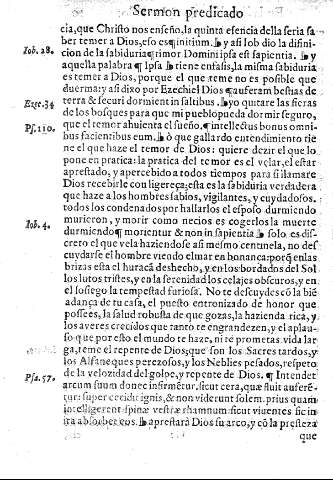 Sermon predicado
cia, que Christo nos enseño, la quinta esencia della seria sa
ber temer a Dios, eso es ¶ initium. ¶ y asi Iob dio la difini-
Iob. 28.
cion de la sabiduria ¶ timor Domini ipsa est sapientia. ¶ y
aquella palabra ¶ Ipsa ¶ tiene enfasis, la misma sabiduria
es temer a Dios, porque el que teme no es posible que
duerma: y asi dixo por Ezechiel Dios ¶ auferam bestias de
Eze. 34
terra & securi dormient in saltibus. ¶ yo quitare las fieras
de los bosques para que mi pueblo pueda dormir seguro,
Ps. 110.
que el temor ahuienta el sueño. ¶ intellectus bonus omni-
bus facientibus eum. ¶ ô que gallardo entendimiento tie
ne el que haze el temor de Dios: quiere dezir el que lo
pone en pratica: la pratica del temor es el velar, el estar
aprestado, y apercebido a todos tiempos para si llamare
Dios recebirle con ligereça: esta es la sabiduria verdadera
que haze a los hombres sabios, vigilantes, y cuydadosos.
todos los condenados por hallarlos el esposo durmiendo
Iob. 4.
murieron, y morir como necios es cogerlos la muerte
durmiendo ¶ morientur & non in sapientia ¶ solo es dis-
creto el que vela haziendose asi mesmo centinela, no des
cuydarse el hombre viendo el mar en bonança: porq̃ en las
brizas esta el huracã deshecho, y en los bordados del Sol
los lutos tristes, y en la serenidad los celajes obscuros, y en
el sosiego la tempestad furiosa. No te descuydes cõ la biẽ
adança de tu casa, el puesto entronizado de honor que
possees, la salud robusta de que gozas, la hazienda rica, y
los averes crecidos que tanto te engrandezen, y el aplau-
so que por esto el mundo te haze, ni te prometas vida lar
ga, teme el repente de Dios, que son los Sacres tardos, y
los Alfaneques perezosos, y los Neblies pesados, respeto
de la velozidad del golpe, y repente de Dios. ¶ Intendet
Psa. 57.
arcum suum donec infirmẽtur. sicut cera, quæ fluit auferẽ-
tur: super cecidit ignis, & non viderunt solem. prius quam
intelligerent spinæ vestræ rhamnum: sicut viventes sic in
ira absorbet eos. ¶ aprestarà Dios su arco, y cõ la presteza
que